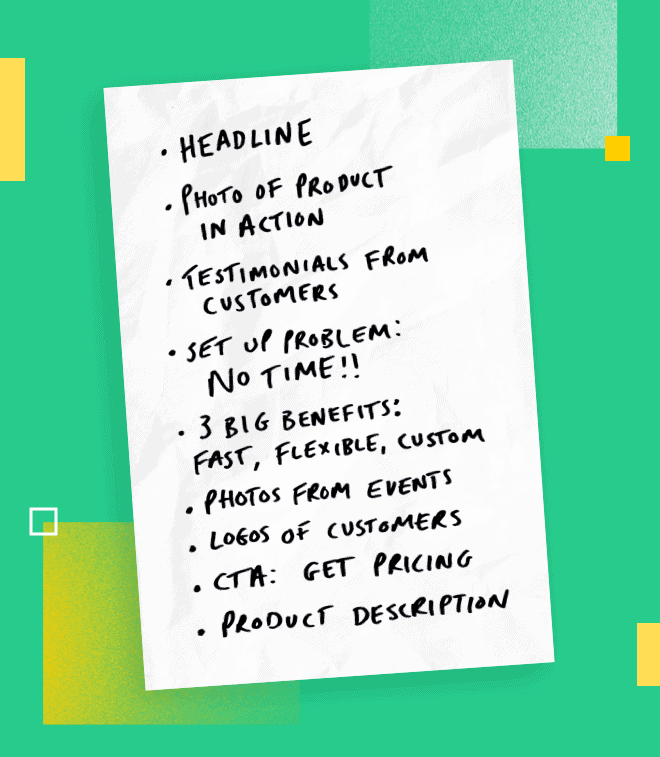 • HEADLINE
• PHOTO OF PRODUCT
IN ACTION
• TESTIMONIALS FROM
CUSTOMERS
• SET UP PROBLEM:
NO TIME!!
• 3 BIG BENEFITS:
FAST, FLEXIBLE, CUSTOM
• PHOTOS FROM EVENTS
• LOGOS OF CUSTOMERS
• CTA: GET PRICING
• PRODUCT DESCRIPTION